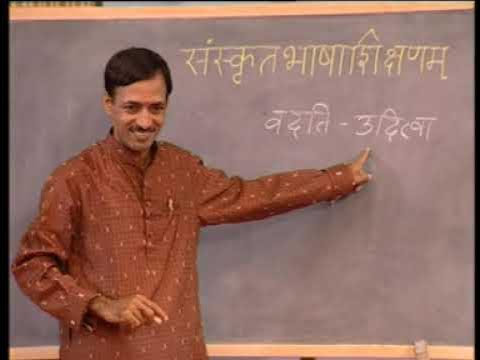 संस्कृतभाषाशिक्षणम्
वदति - उदित्वा